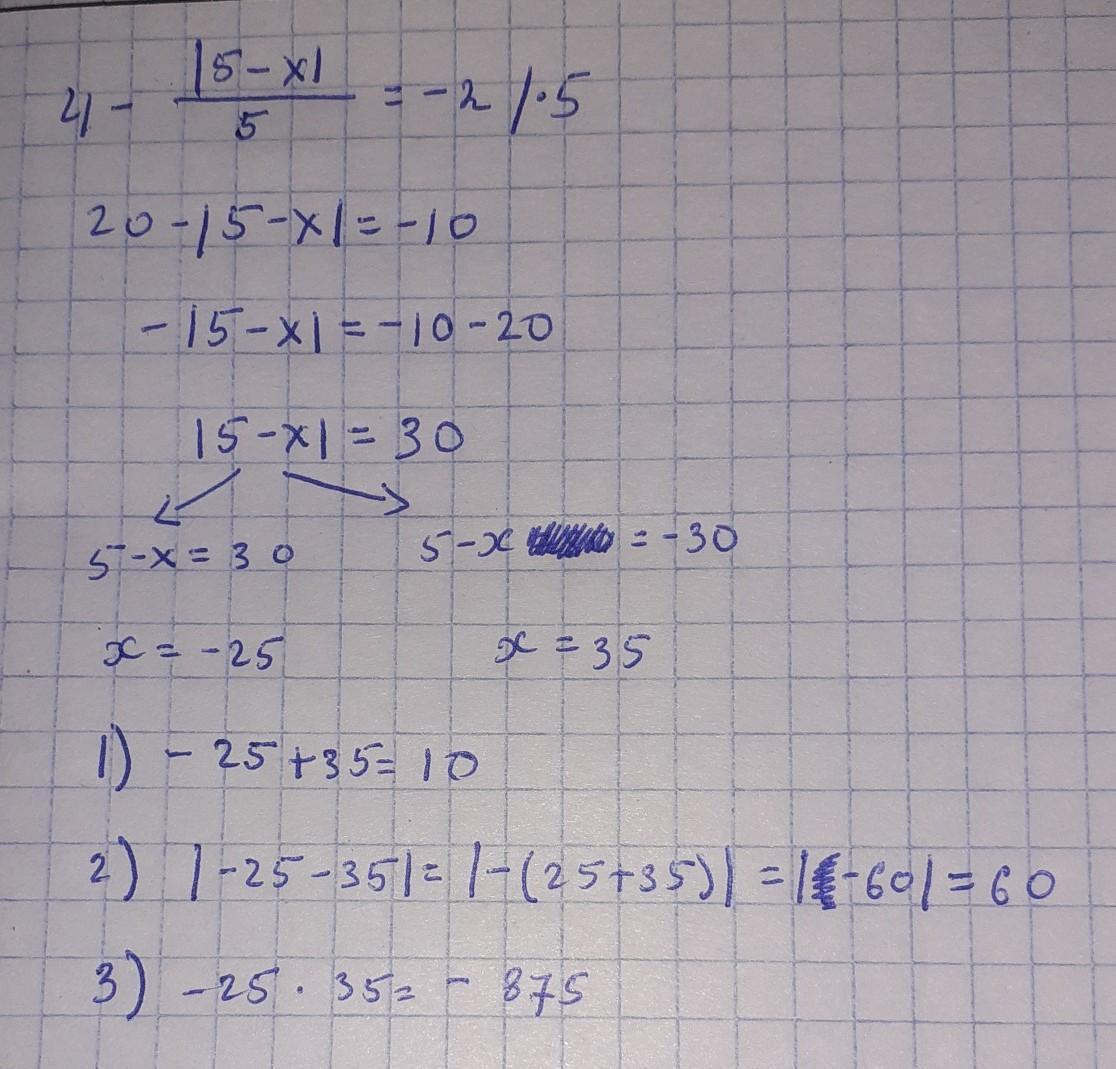 4 - |5-x|/5 = -2 /·5
20 - |5-x| = -10
-|5-x| = -10-20
|5-x| = 30
5-x = 30 5-x = -30
x = -25 x = 35
1) -25+35 = 10
2) |-25-35| = |-(25+35)| = |-60| = 60
3) -25 · 35 = -875